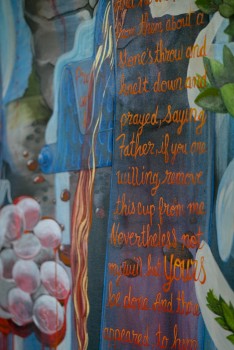 from them about a
stone's throw and
knelt down and
prayed, saying
Father, if you are
willing, remove
this cup from me
Nevertheless not
my will, but YOURS
be done. And there
appeared to him